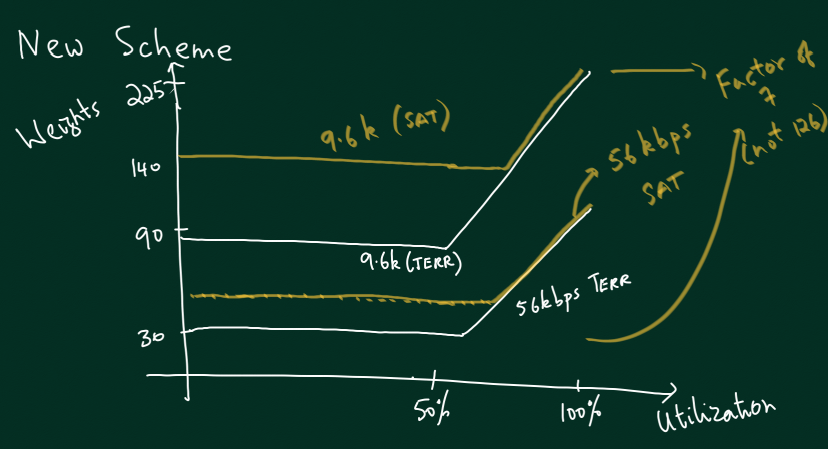 New Scheme
Weights
225
140
90
30
9.6k (SAT)
9.6k (TERR)
56kbps
SAT
56kbps TERR
Factor of
7
(not 126)
50%
100%
Utilization